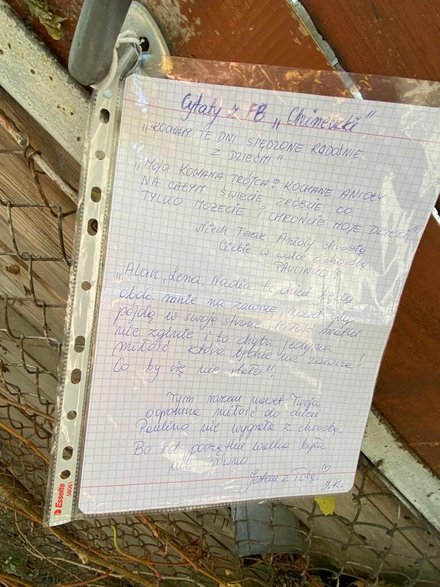 Cytaty z FB "
"KOCHAM TE DNI SPĘDZONE RADOŚNIE
Z DZIEĆMI"
"MOJA KOCHANA TRÓJCA♡ KOCHANE ANIOŁY
NA CAŁYM ŚWIECIE ZRÓBCIE CO
TYLKO MOŻECIE I CHROŃCIE MOJE DZIECI"
Niech Teraz Anioły
Ciebie w walce z chorobą
"Alan, Lena, Nadia to dzieci
obok mnie na zawsze, nawet gdy
pójdą w swoją stronę. Miłość matki
nie zginie i to chyba jedyna
miłość która będzie na zawsze!
Co by się nie stało"!!
Tym razem nawet Twoja
ogromna miłość do dzieci
Paulino nie wygrała z chorobą.
Bo od początku walka była
nie równa.
Jestem z Tobą. ♡
K.
Esselte